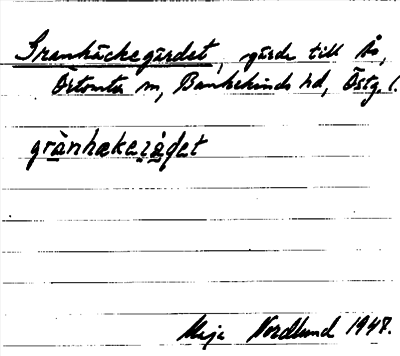 Granhäckegärdet, gärde till Ås,
Örtomta sn, Bankekinds hd, Östg. l.
grànhækejạ̈ḍet
Maja Nordlund 1947.